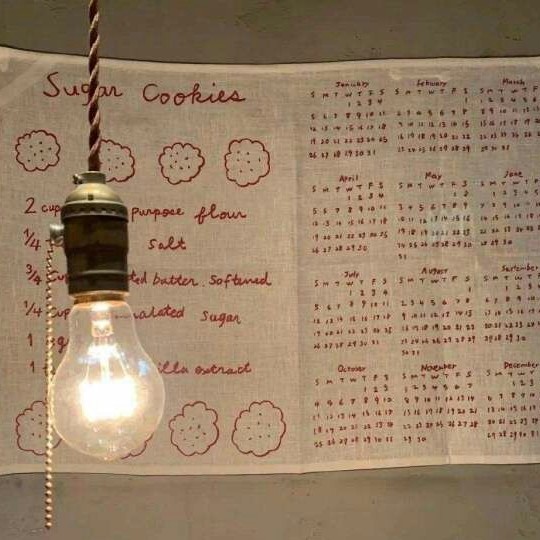 Sugar Cookies
2 cup purpose flour
1/4 salt
3/4 ted butter, softened
1/4 cup nulated sugar
1
1 illa extract
January
S M T W T F S
1 2 3 4
5 6 7 8 9 10 11
12 13 14 15 16 17 18
19 20 21 22 23 24 25
26 27 28 29 30 31
February
S M T W T F S
1
2 3 4 5 6 7 8
9 10 11 12 13 14 15
16 17 18 19 20 21 22
23 24 25 26 27 28 29
March
S M T W T F
1 2 3 4 5 6
8 9 10 11 12 13
15 16 17 18 19 20
22 23 24 25 26 27
29 30 31
April
S M T W T F S
1 2 3 4
5 6 7 8 9 10 11
12 13 14 15 16 17 18
19 20 21 22 23 24 25
26 27 28 29 30
May
S M T W T F S
1 2
3 4 5 6 7 8 9
10 11 12 13 14 15 16
17 18 19 20 21 22 23
24 25 26 27 28 29 30
31
June
S M T W T F
1 2 3 4 5
7 8 9 10 11 12
14 15 16 17 18 19
21 22 23 24 25 26
28 29 30
July
S M T W T F S
1 2 3 4
5 6 7 8 9 10 11
12 13 14 15 16 17 18
19 20 21 22 23 24 25
26 27 28 29 30 31
August
S M T W T F S
1
2 3 4 5 6 7 8
9 10 11 12 13 14 15
16 17 18 19 20 21 22
23 24 25 26 27 28 29
30 31
September
S M T W T
1 2 3
6 7 8 9 10
13 14 15 16 17
20 21 22 23 24 25
27 28 29 30
October
S M T W T F S
1 2 3
4 5 6 7 8 9 10
11 12 13 14 15 16 17
18 19 20 21 22 23 24
25 26 27 28 29 30 31
November
S M T W T F S
1 2 3 4 5 6 7
8 9 10 11 12 13 14
15 16 17 18 19 20 21
22 23 24 25 26 27 28
29 30
December
S M T W T
1 2 3
6 7 8 9 10